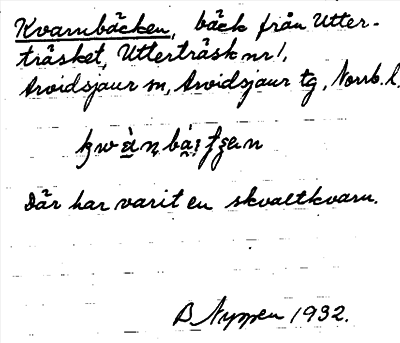 Kvarnbäcken, bäck från Utter-
träsket, Utterträsk nr 1,
Arvidsjaur sn, Arvidsjaur tg, Norrb. l.
Där har varit en skvaltkvarn.
B Nyppen 1932.